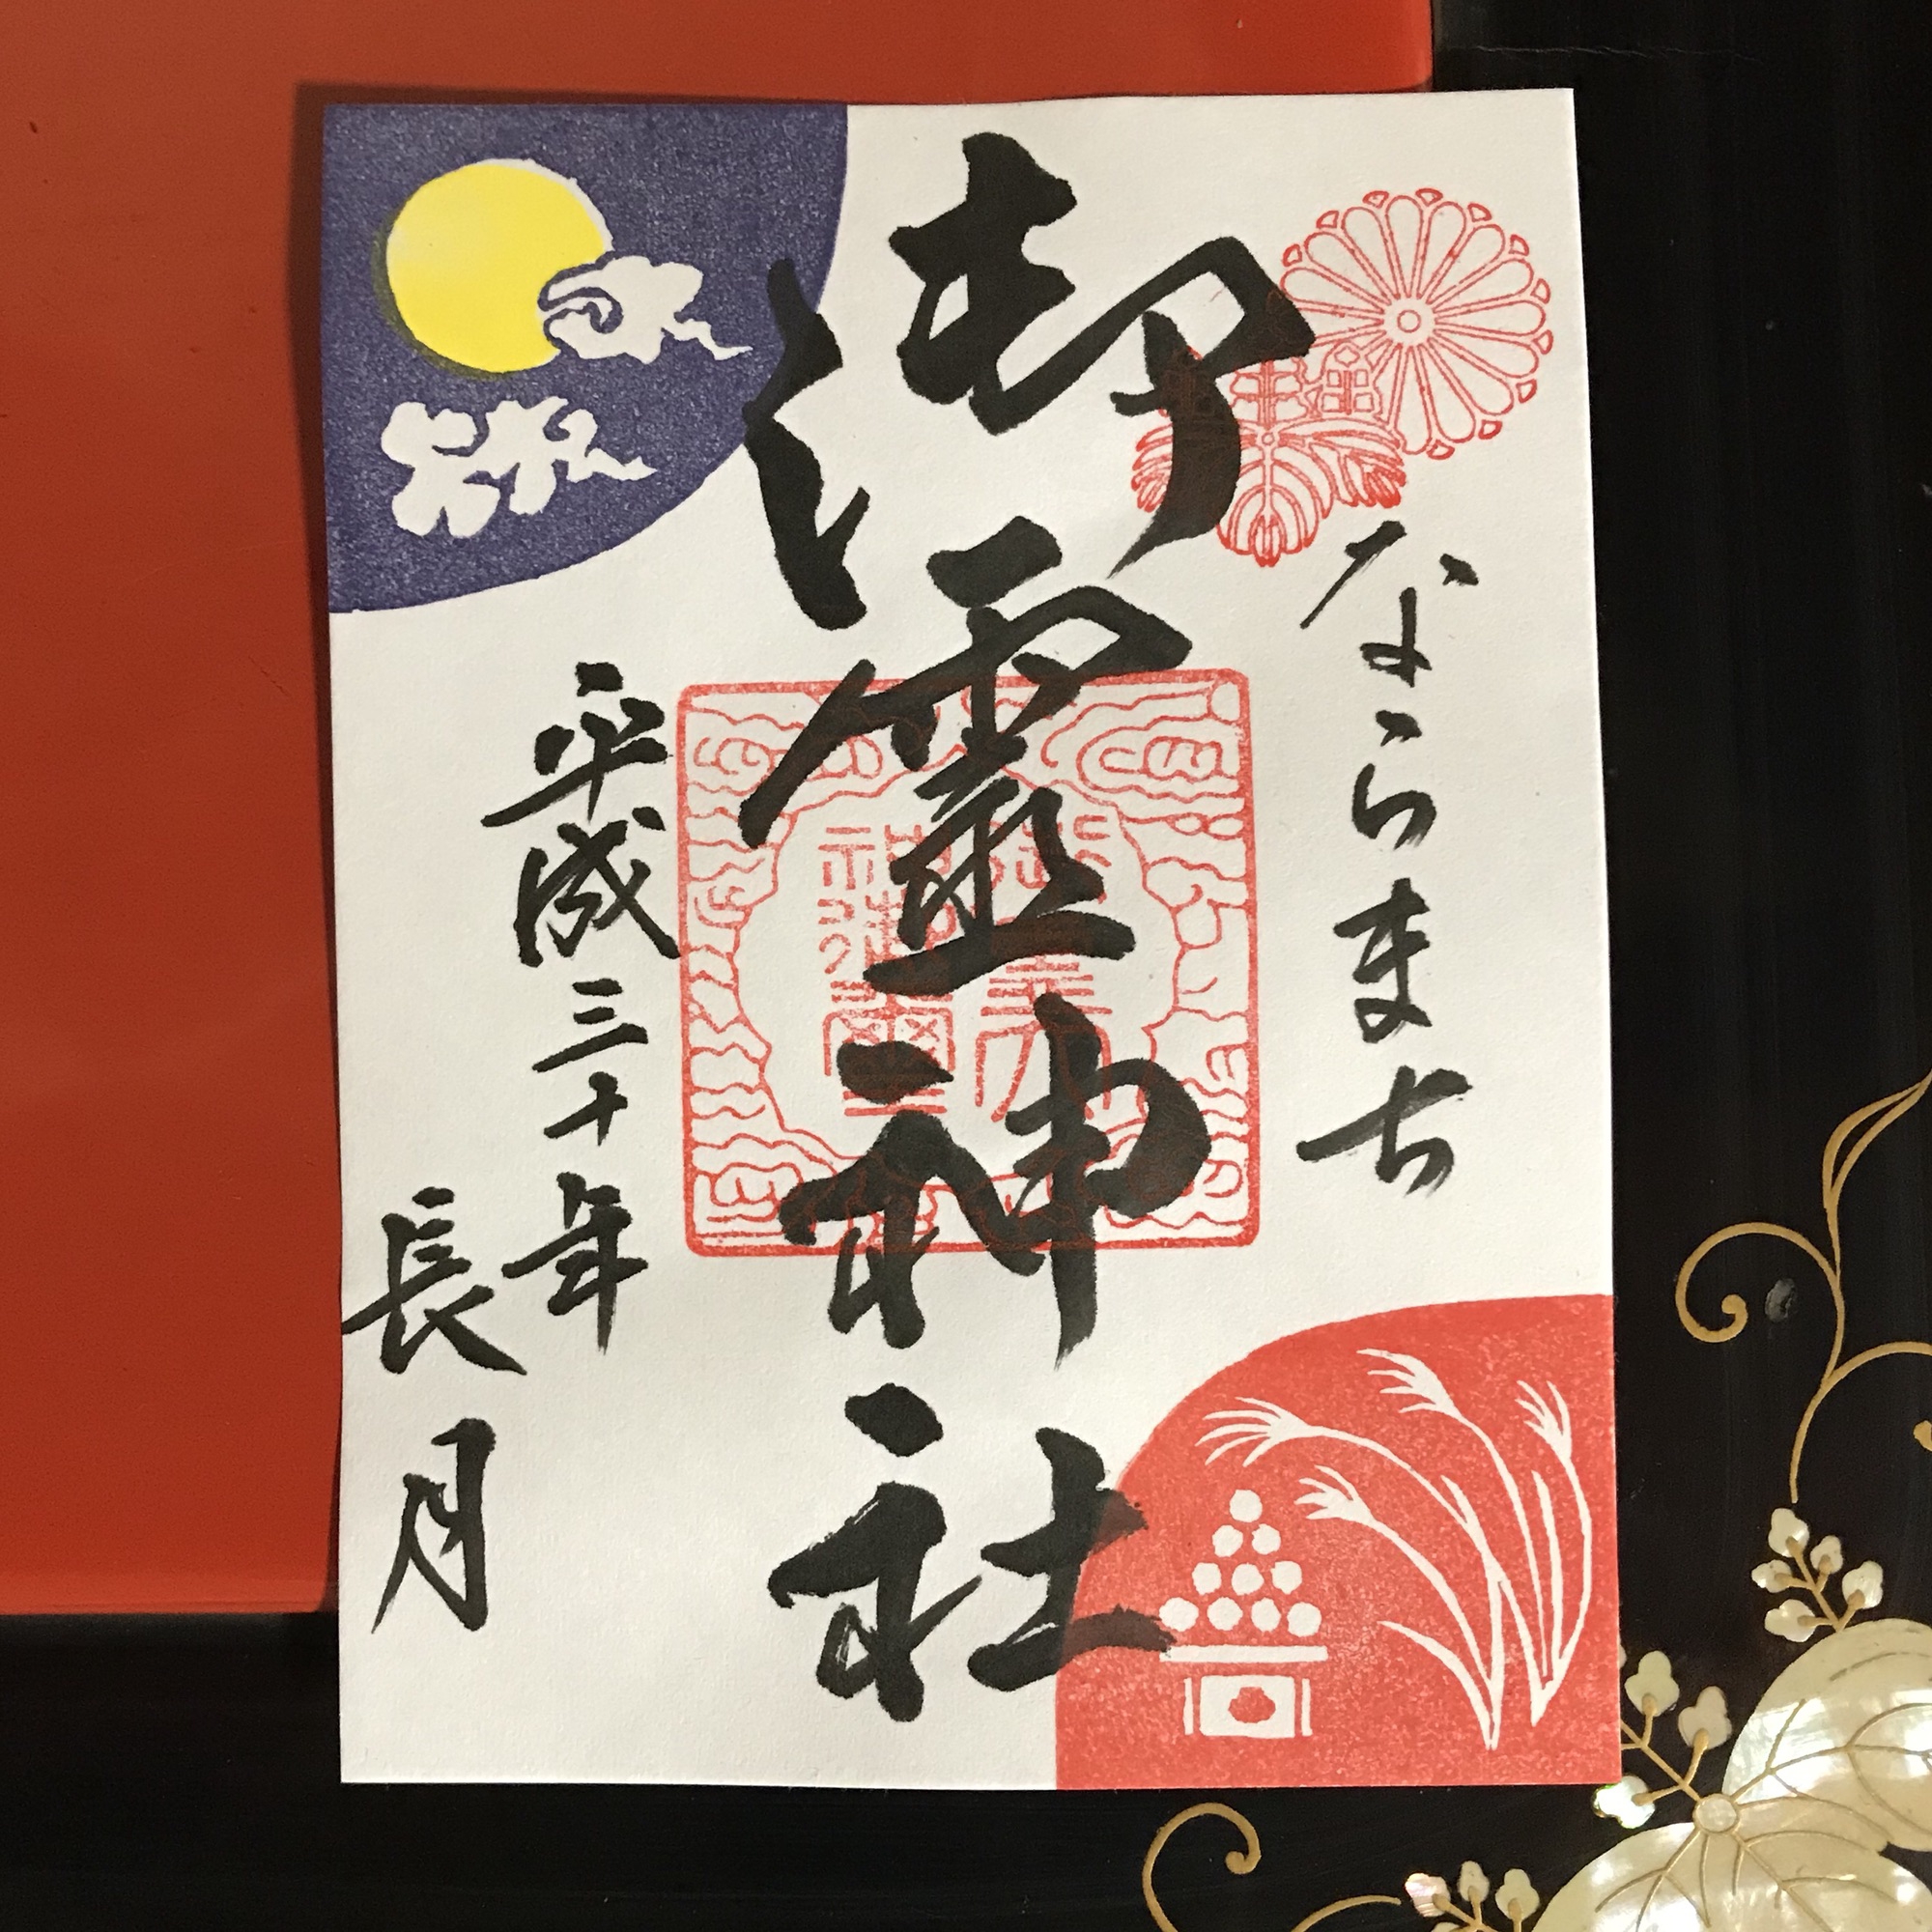 ならまち
御霊神社
平成三十年
長月